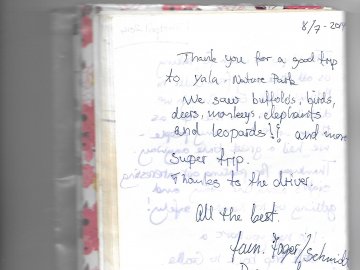 8/7-2009
Thank you for a good trip
to yala. Nature Park
We saw buffolds, birds,
deers, monkeys, elephants
and leopards!! and more
Super trip.
Thanks to the driver.
All the best.
Fam.